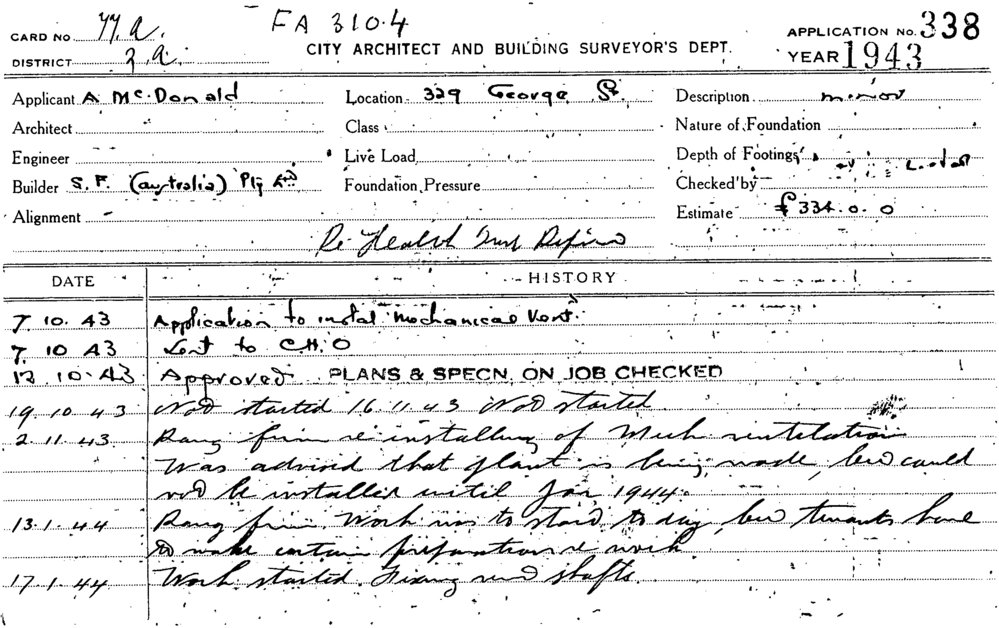 CARD NO. 77a. FA 3104 APPLICATION NO. 338
DISTRICT 2a. CITY ARCHITECT AND BUILDING SURVEYOR'S DEPT. YEAR 1943
Applicant A McDonald Location 329 George St. Description minor
Architect Class Nature of Foundation
Engineer Live Load Depth of Footings
Builder S.F. (Australia) Pty Ltd Foundation Pressure Checked by
Alignment - Estimate £334.0.0
Re Health
DATE HISTORY
7. 10. 43 Application to instal Mechanical Vent.
7. 10 43 Sent to C.H.O
12 10. 43 Approved PLANS & SPECN. ON JOB CHECKED
19. 10. 43 Not started 16.11.43 Not started.
2. 11. 43 Rang firm re installing of Mech ventilation
Was advised that plant is being made, but could
not be installed until Jan 1944.
13. 1. 44 Rang firm. Work was to start today but tenants have
to make certain preparations re work.
17. 1. 44 Work started. Fixing shafts.